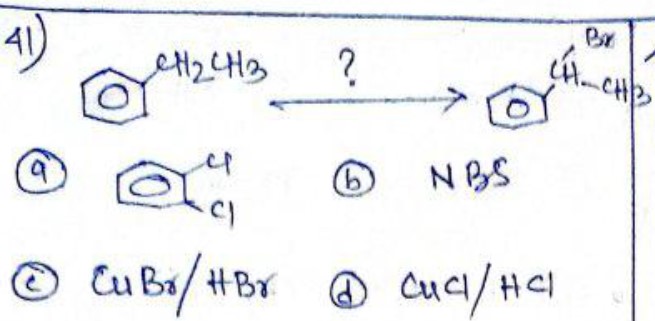 41)
CH2CH3 ? Br
CH-CH3
(a) Cl (b) NBS
Cl
(c) CuBr/HBr (d) CuCl/HCl